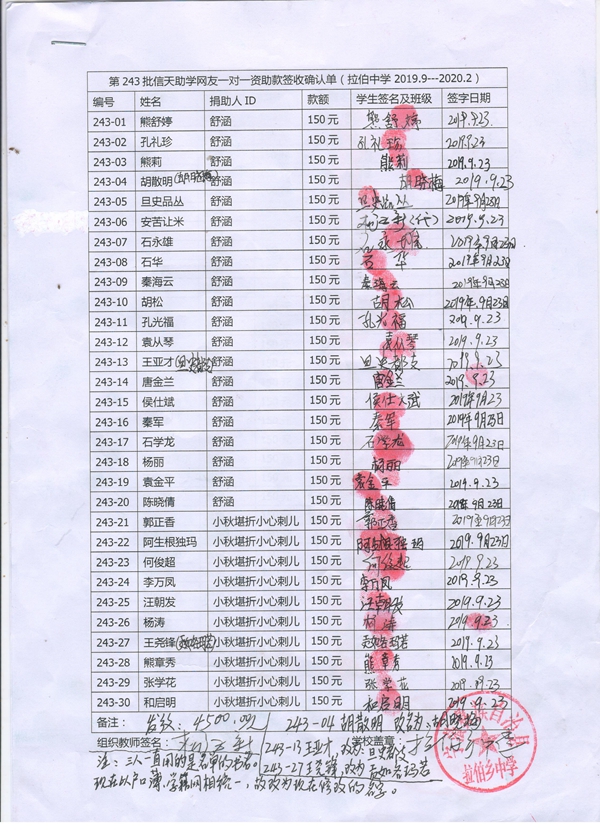 第 243 批信天助学网友一对一资助款签收确认单（拉伯中学 2019.9---2020.2）
编号 姓名 捐助人 ID 款额 学生签名及班级 签字日期
243-01 熊舒婷 舒涵 150 元 熊舒婷 2019.9.23
243-02 孔礼珍 舒涵 150 元 孔礼珍 2019.9.23
243-03 熊莉 舒涵 150 元 熊莉 2019.9.23
243-04 胡散明(胡晓梅) 舒涵 150 元 胡晓梅 2019.9.23
243-05 旦史品丛 舒涵 150 元 旦史品丛 2019年9月23日
243-06 安苦让米 舒涵 150 元 (代) 2019.9.23
243-07 石永雄 舒涵 150 元 石永雄 2019年9月23日
243-08 石华 舒涵 150 元 石华 2019年9月23日
243-09 秦海云 舒涵 150 元 秦海云 2019年9月23日
243-10 胡松 舒涵 150 元 胡松 2019年9月23日
243-11 孔光福 舒涵 150 元 孔光福 2019.9.23
243-12 袁从琴 舒涵 150 元 袁从琴 2019.9.23
243-13 王亚才 舒涵 150 元 2019.9.23
243-14 唐金兰 舒涵 150 元 唐金兰 2019.9.23
243-15 侯仕斌 舒涵 150 元 侯仕斌 2019年9月23
243-16 秦军 舒涵 150 元 秦军 2019年9月23日
243-17 石学龙 舒涵 150 元 石学龙 2019年9月23日
243-18 杨丽 舒涵 150 元 杨丽 2019年9月23日
243-19 袁金平 舒涵 150 元 袁金平 2019.9.23
243-20 陈晓倩 舒涵 150 元 陈晓倩 2019年9月23日
243-21 郭正香 小秋堪折小心刺儿 150 元 郭正香 2019年9月23日
243-22 阿生根独玛 小秋堪折小心刺儿 150 元 阿生根独玛 2019.9月23日
243-23 何俊超 小秋堪折小心刺儿 150 元 何俊超 2019.9.23
243-24 李万凤 小秋堪折小心刺儿 150 元 李万凤 2019.9.23
243-25 汪朝发 小秋堪折小心刺儿 150 元 汪朝发 2019.9.23
243-26 杨涛 小秋堪折小心刺儿 150 元 杨涛 2019.9.23
243-27 王尧锋 小秋堪折小心刺儿 150 元 2019.9.23
243-28 熊章秀 小秋堪折小心刺儿 150 元 熊章秀 2019.9.23
243-29 张学花 小秋堪折小心刺儿 150 元 张学花 2019.9.23
243-30 和启明 小秋堪折小心刺儿 150 元 和启明 2019.9.23
备注： 发放：4500.00 243-04 胡散明 改名为：胡晓梅
组织教师签名： 学校盖章：
243-13王亚才，改为
注：三人一直用的是名单的姓名。 243-27王尧锋，改为
现在以户口薄、学籍网相统一，故改为现在修改的名字。
拉伯乡中学